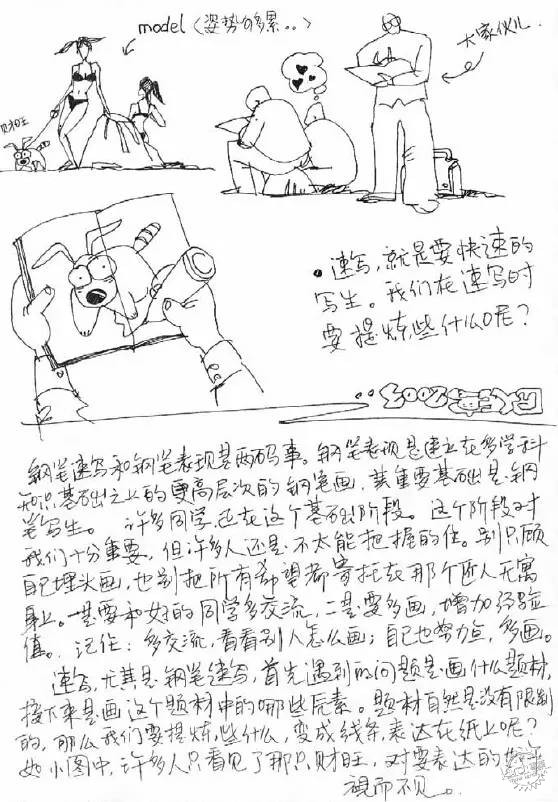 model (姿势的多累..)
大家伙儿
财旺
• 速写,就是要快速的
写生。我们在速写时
要提炼些什么呢?
2003
钢笔速写和钢笔表现是两码事。钢笔表现是建立在多学科
知识基础之上的更高层次的钢笔画,其重要基础是钢
笔写生。 许多同学还在这个基础阶段。这个阶段对
我们十分重要,但许多人还是不太能把握的住。别只顾
自己埋头画,也别把所有希望都寄托在那个匠人无寓
身上。一是要和好的同学多交流,二是要多画,增加经验
值。 记住:多交流,看看别人怎么画;自己也努力点,多画。
速写,尤其是钢笔速写,首先遇到的问题是画什么题材,
接下来是画这个题材中的哪些元素。题材自然是没有限制
的,那么我们要提炼些什么,变成线条,表达在纸上呢?
如小图中,许多人只看见了那只财旺,对要表达的
视而不见。